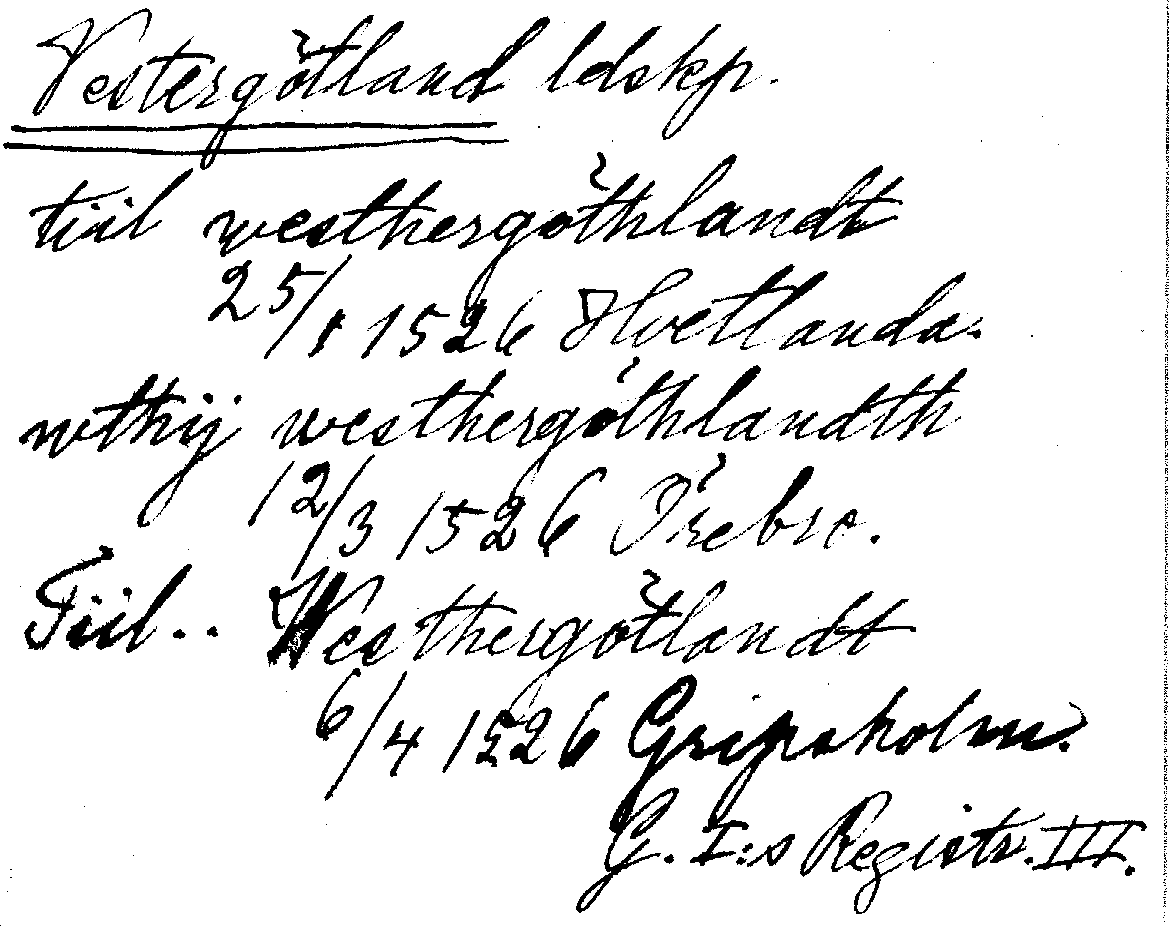 Vestergötland ldskp.
tiil westhergöthlandt
25/1 1526 Hvetlanda.
wthij westhergöthlandth
12/3 1526 Örebro.
Tiil.. Westhergötlandt
6/4 1526 Gripsholm.
G. I:s Registr. III.